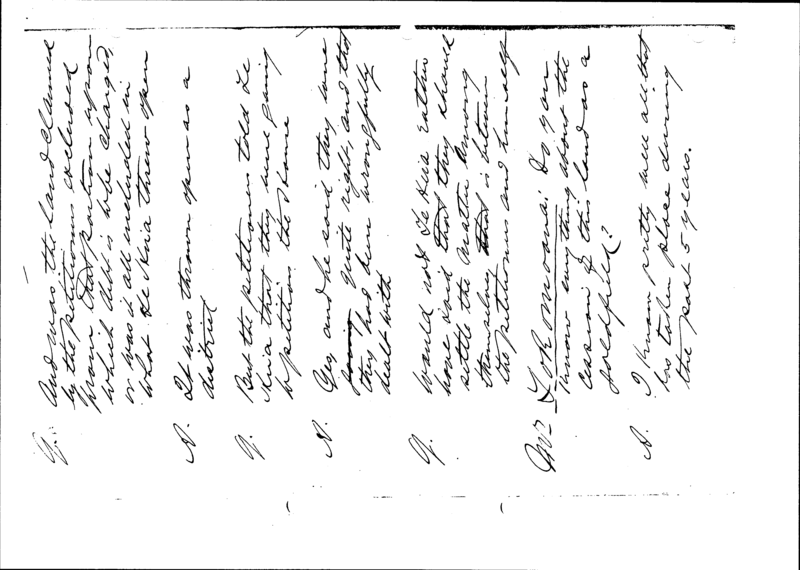 Q. And was the land claimed
by the petitioners excluded
from that portion upon
which debt is who charged,
or was it all included in
what Te Hira threw open
A. It was thrown open as a
district
Q. But the petitioners told Te
Hira that they were going
to petition the House
A. Yes and he said they were
quite right, and that
they had been wrongfully
dealt with
Q. Would not Te Hira rather
have said that they should
settle the matter among
themselves that is between
the petitioners and himself
Mr Tokomoana: Do you
know anything about the
cession of this land as a
goldfield?
A. I know pretty well all that
has taken place during
the past 5 years.